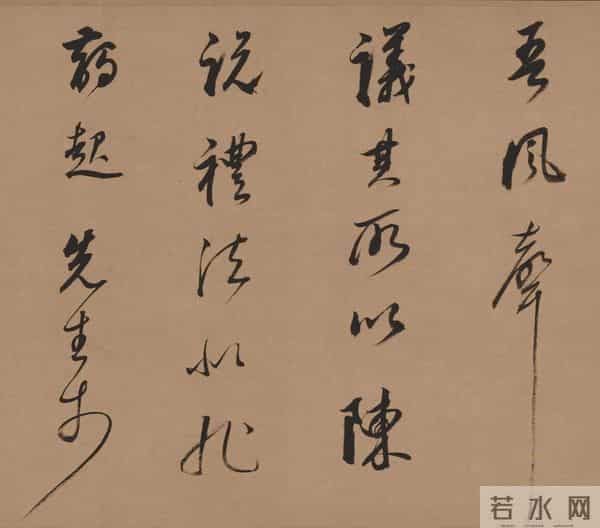 吾風聲
議其所以陳
說禮法是非
起先生於
若水网